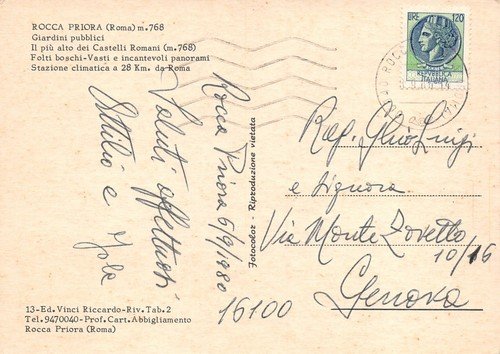 ROCCA PRIORA (Roma) m.768
Giardini pubblici
Il più alto dei Castelli Romani (m.768)
Folti boschi-Vasti e incantevoli panorami
Stazione climatica a 28 Km. da Roma
LIRE 120
REPUBBLICA
ITALIANA
Rocca Priora 5/9/1980
Saluti affettuosi
Attilio e Jola
Fotocolor - Riproduzione vietata
Rag. Luigi
e Signora
Via Monte Zovetto
10/16
16100
Genova
13-Ed.Vinci Riccardo-Riv.Tab.2
Tel.9470040-Prof.Cart.Abbigliamento
Rocca Priora (Roma)